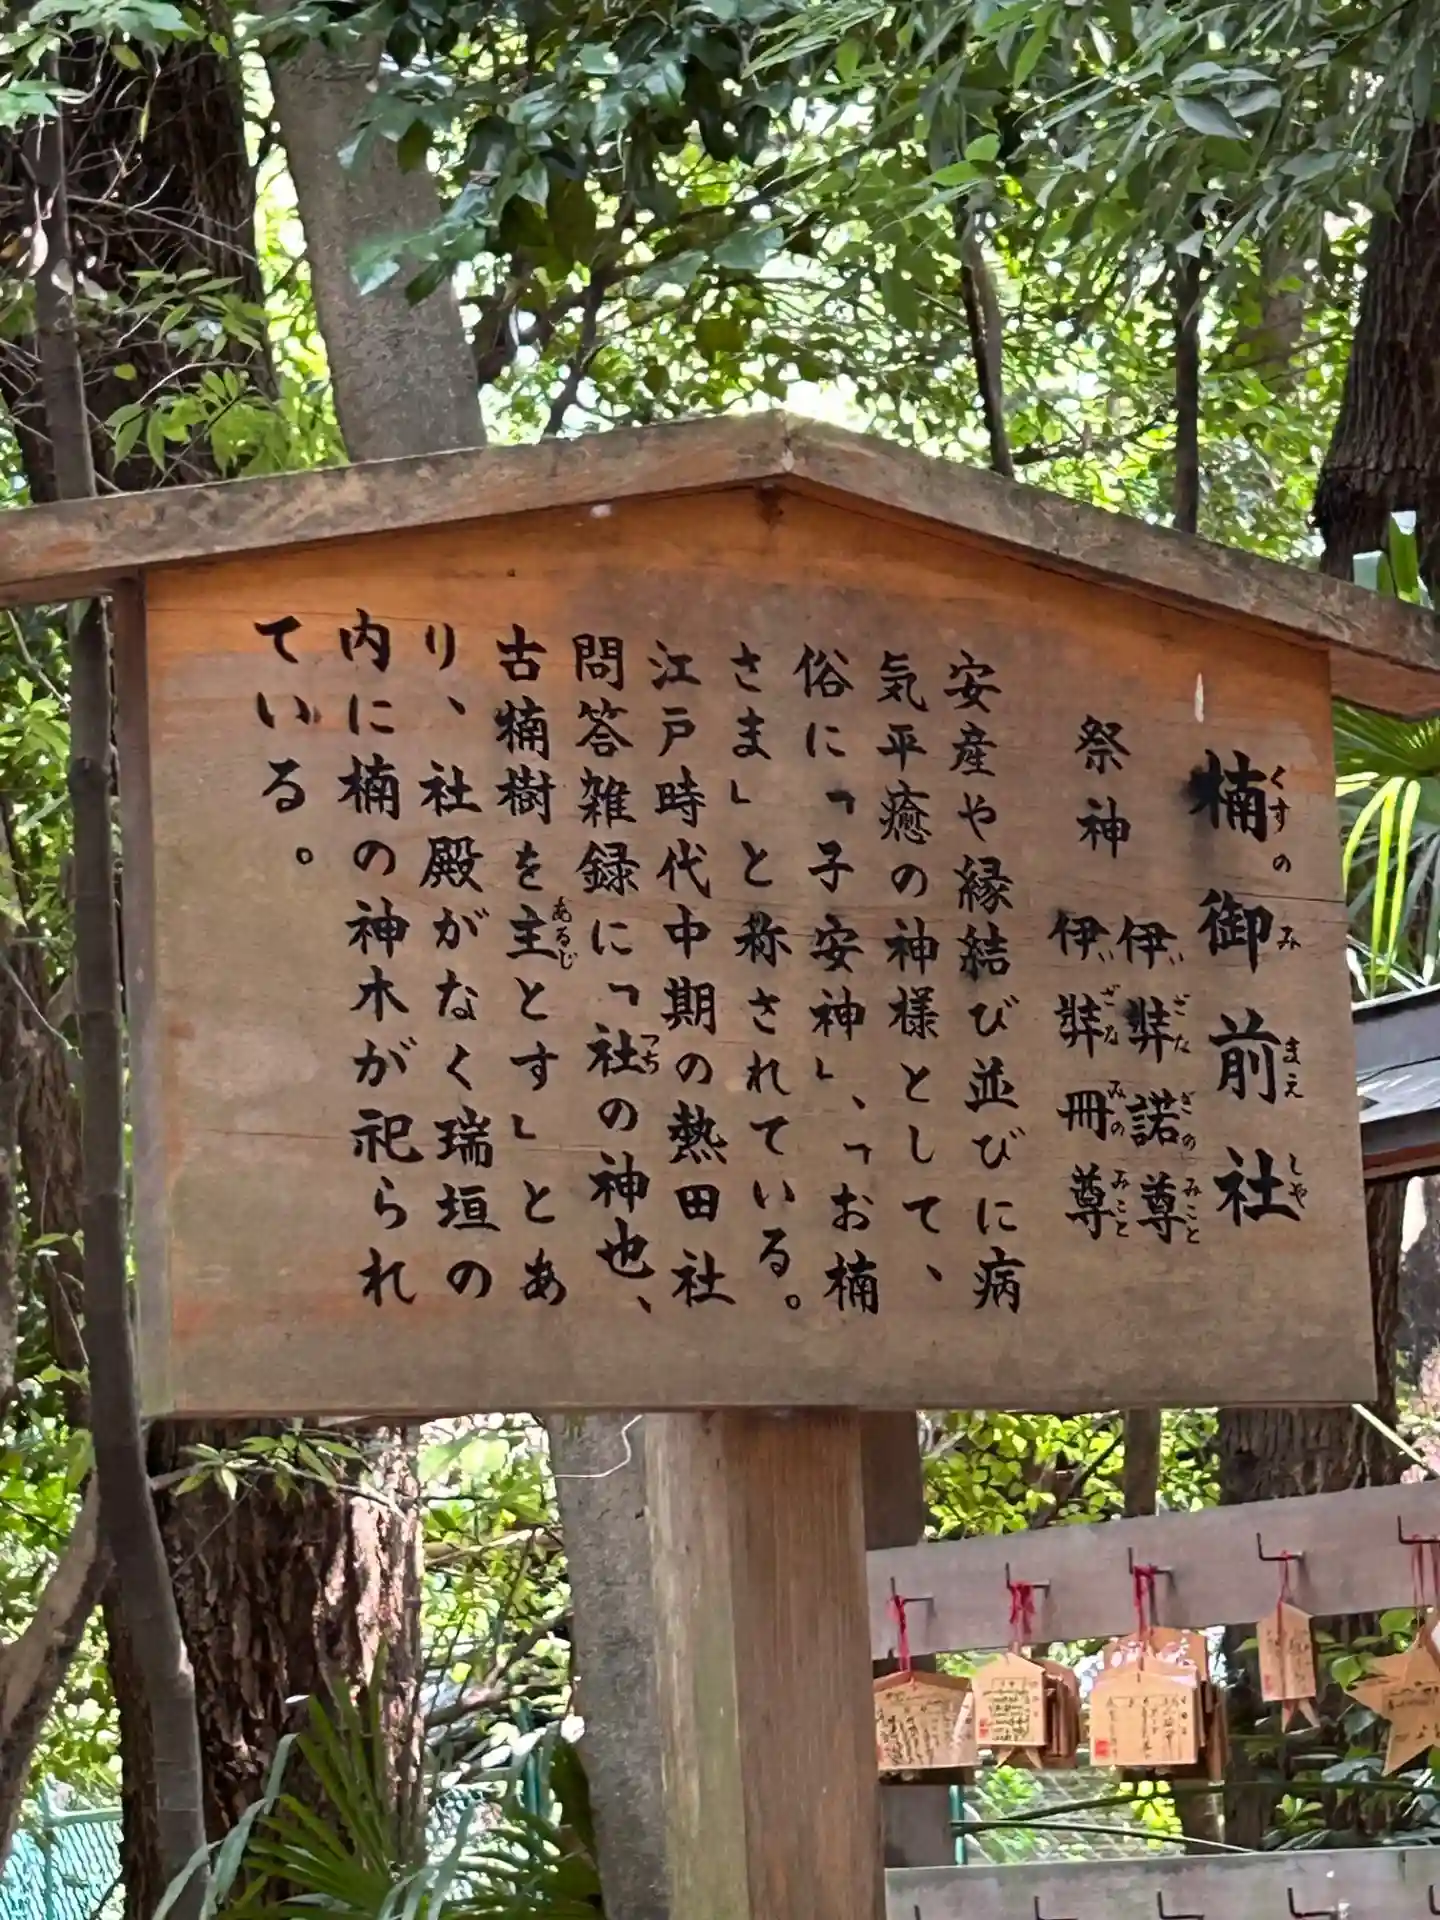 楠御前社
くすのみまえしゃ
祭神
伊弉諾尊
いざなぎのみこと
伊弉冊尊
いざなみのみこと
安産や縁結び並びに病
気平癒の神様として、
俗に「子安神」、「お楠
さま」と称されている。
江戸時代中期の熱田社
問答雑録に「社の神也、
つち
古楠樹を主とす」とあ
あるじ
り、社殿がなく瑞垣の
内に楠の神木が祀られ
ている。